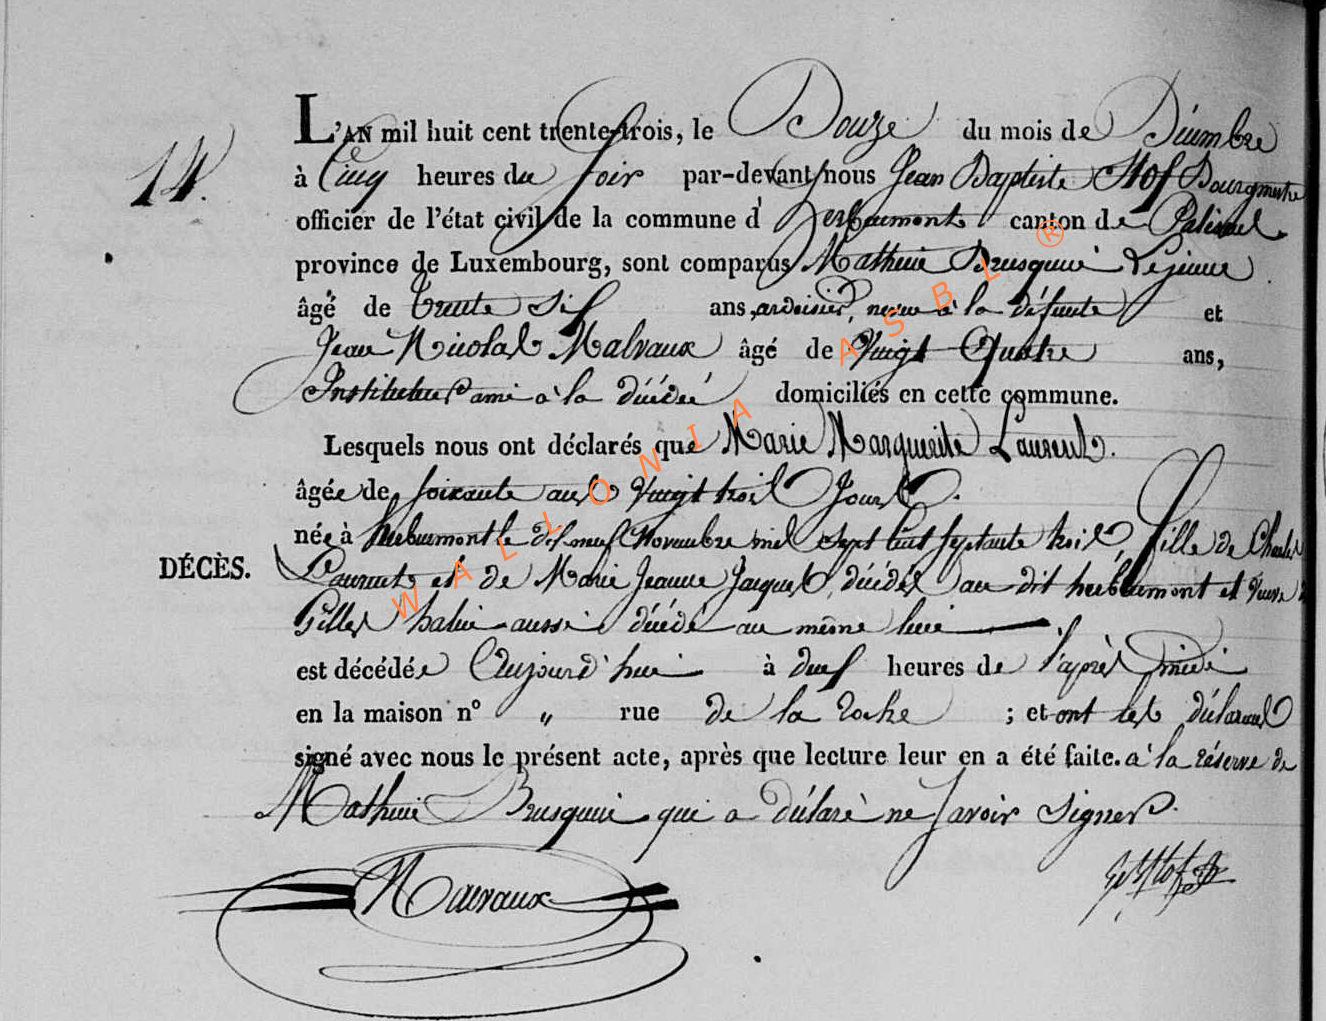 L'AN mil huit cent trente-trois, le Douze du mois de Décembre
14.
à Cinq heures du soir par-devant nous Jean Baptiste Stof Bourgmestre
officier de l'état civil de la commune d'herbeumont canton de Paliseul
province de Luxembourg, sont comparus Mathieu Brusquin Lejeune
âgé de trente six ans ardoisier, neveu à la défunte et
Jean Nicolas Malvaux âgé de Vingt Quatre ans,
Instituteur ami à la décédée domiciliés en cette commune.
Lesquels nous ont déclarés que Marie Marguerite Laurent.
âgée de soixante ans Vingt trois Jours.
née à herbeumont le dix neuf Novembre mil sept cent septante trois, fille de Charles
DÉCÈS.
Laurent et de Marie Jeanne Jacques, décédés au dit herbeumont et Veuve
Gilles aussi décédé au même lieu
est décédée Aujourd'hui à deux heures de l'après midi
en la maison n° „ rue de la roche ; et ont les déclarans
signé avec nous le présent acte, après que lecture leur en a été faite. à la réserve de
Mathieu Brusquin qui a déclaré ne savoir signer.
Malvaux
WALLONIA ASBL ®